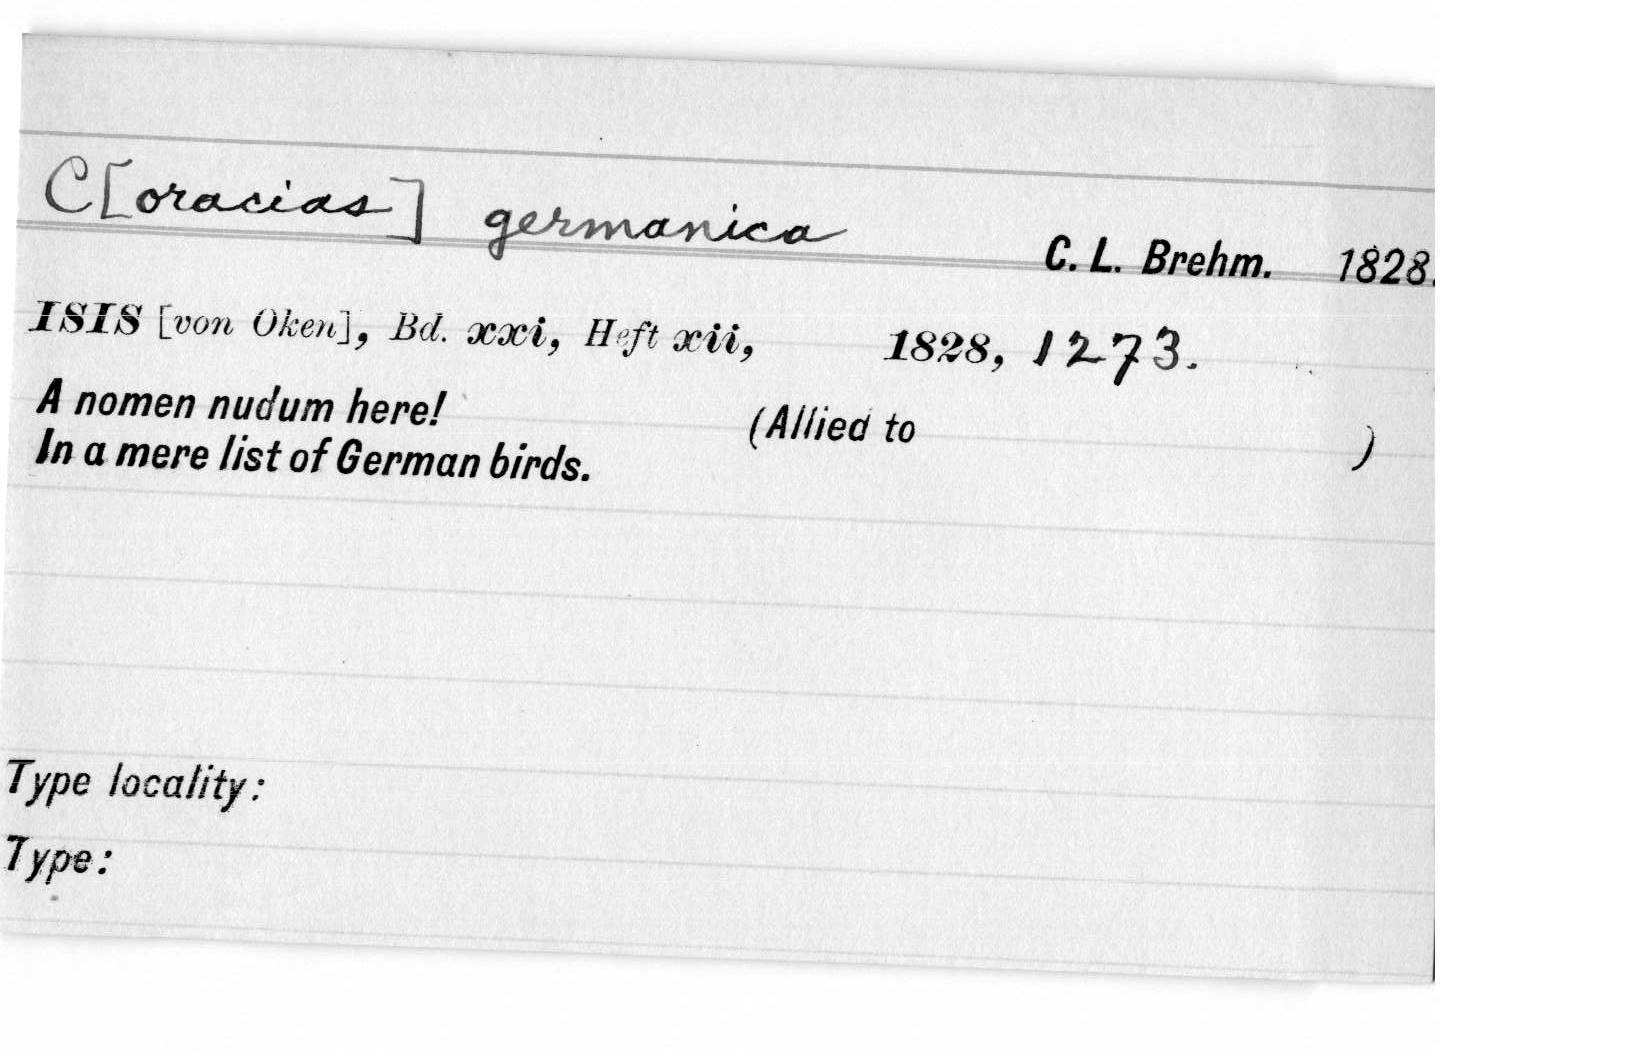 C[oracias] germanica
C. L. Brehm. 1828.
ISIS [von Oken], Bd. xxi, Heft xii, 1828, 1273.
A nomen nudum here!
(Allied to )
In a mere list of German birds.
Type locality:
Type: